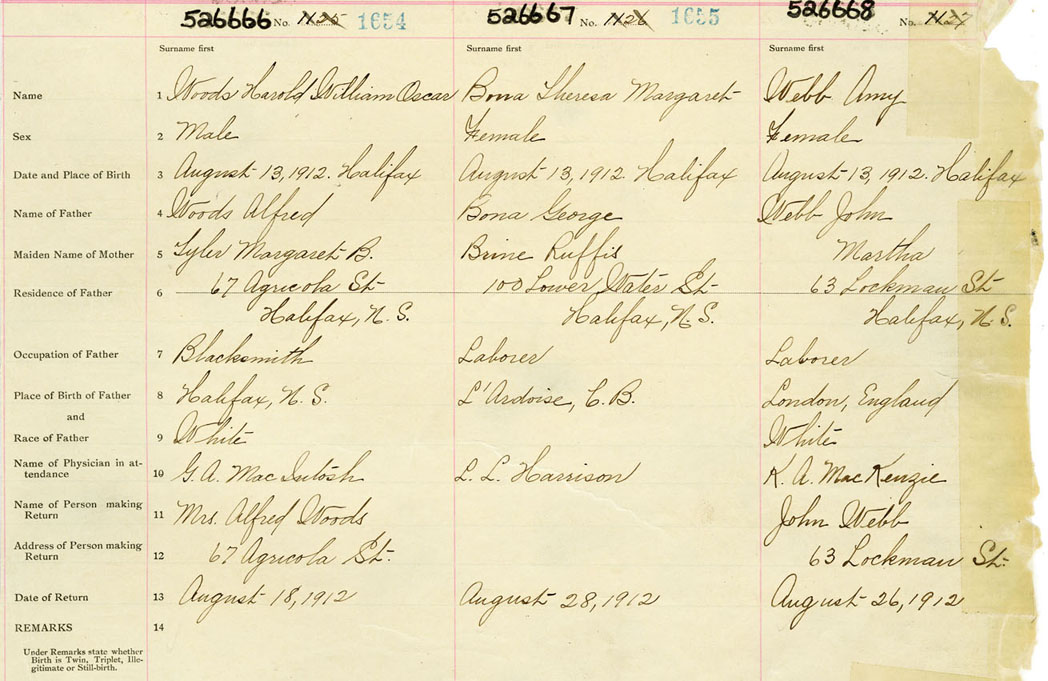 526666 No. 1125 1654 526667 No. 1126 1655 526668 No. 1127
Surname first Surname first Surname first
Name 1 Woods Harold William Oscar Bona Theresa Margaret Webb Amy
Sex 2 Male Female Female
Date and Place of Birth 3 August 13, 1912. Halifax August 13, 1912 Halifax August 13, 1912. Halifax
Name of Father 4 Woods Alfred Bona George Webb John
Maiden Name of Mother 5 Tyler Margaret B. Brine Ruffis Martha
Residence of Father 6 67 Agricola St. 100 Lower Water St. 63 Lockman St.
Halifax, N.S. Halifax, N.S. Halifax, N.S.
Occupation of Father 7 Blacksmith Laborer Laborer
Place of Birth of Father 8 Halifax, N.S. L'Ardoise, C.B. London, England
and
Race of Father 9 White White
Name of Physician in at-
tendance 10 G.A. MacIntosh L.L. Harrison K.A. MacKenzie
Name of Person making
Return 11 Mrs. Alfred Woods John Webb
Address of Person making
Return 12 67 Agricola St. 63 Lockman St.
Date of Return 13 August 18, 1912 August 28, 1912 August 26, 1912
REMARKS 14
Under Remarks state whether
Birth is Twin, Triplet, Ille-
gitimate or Still-birth.